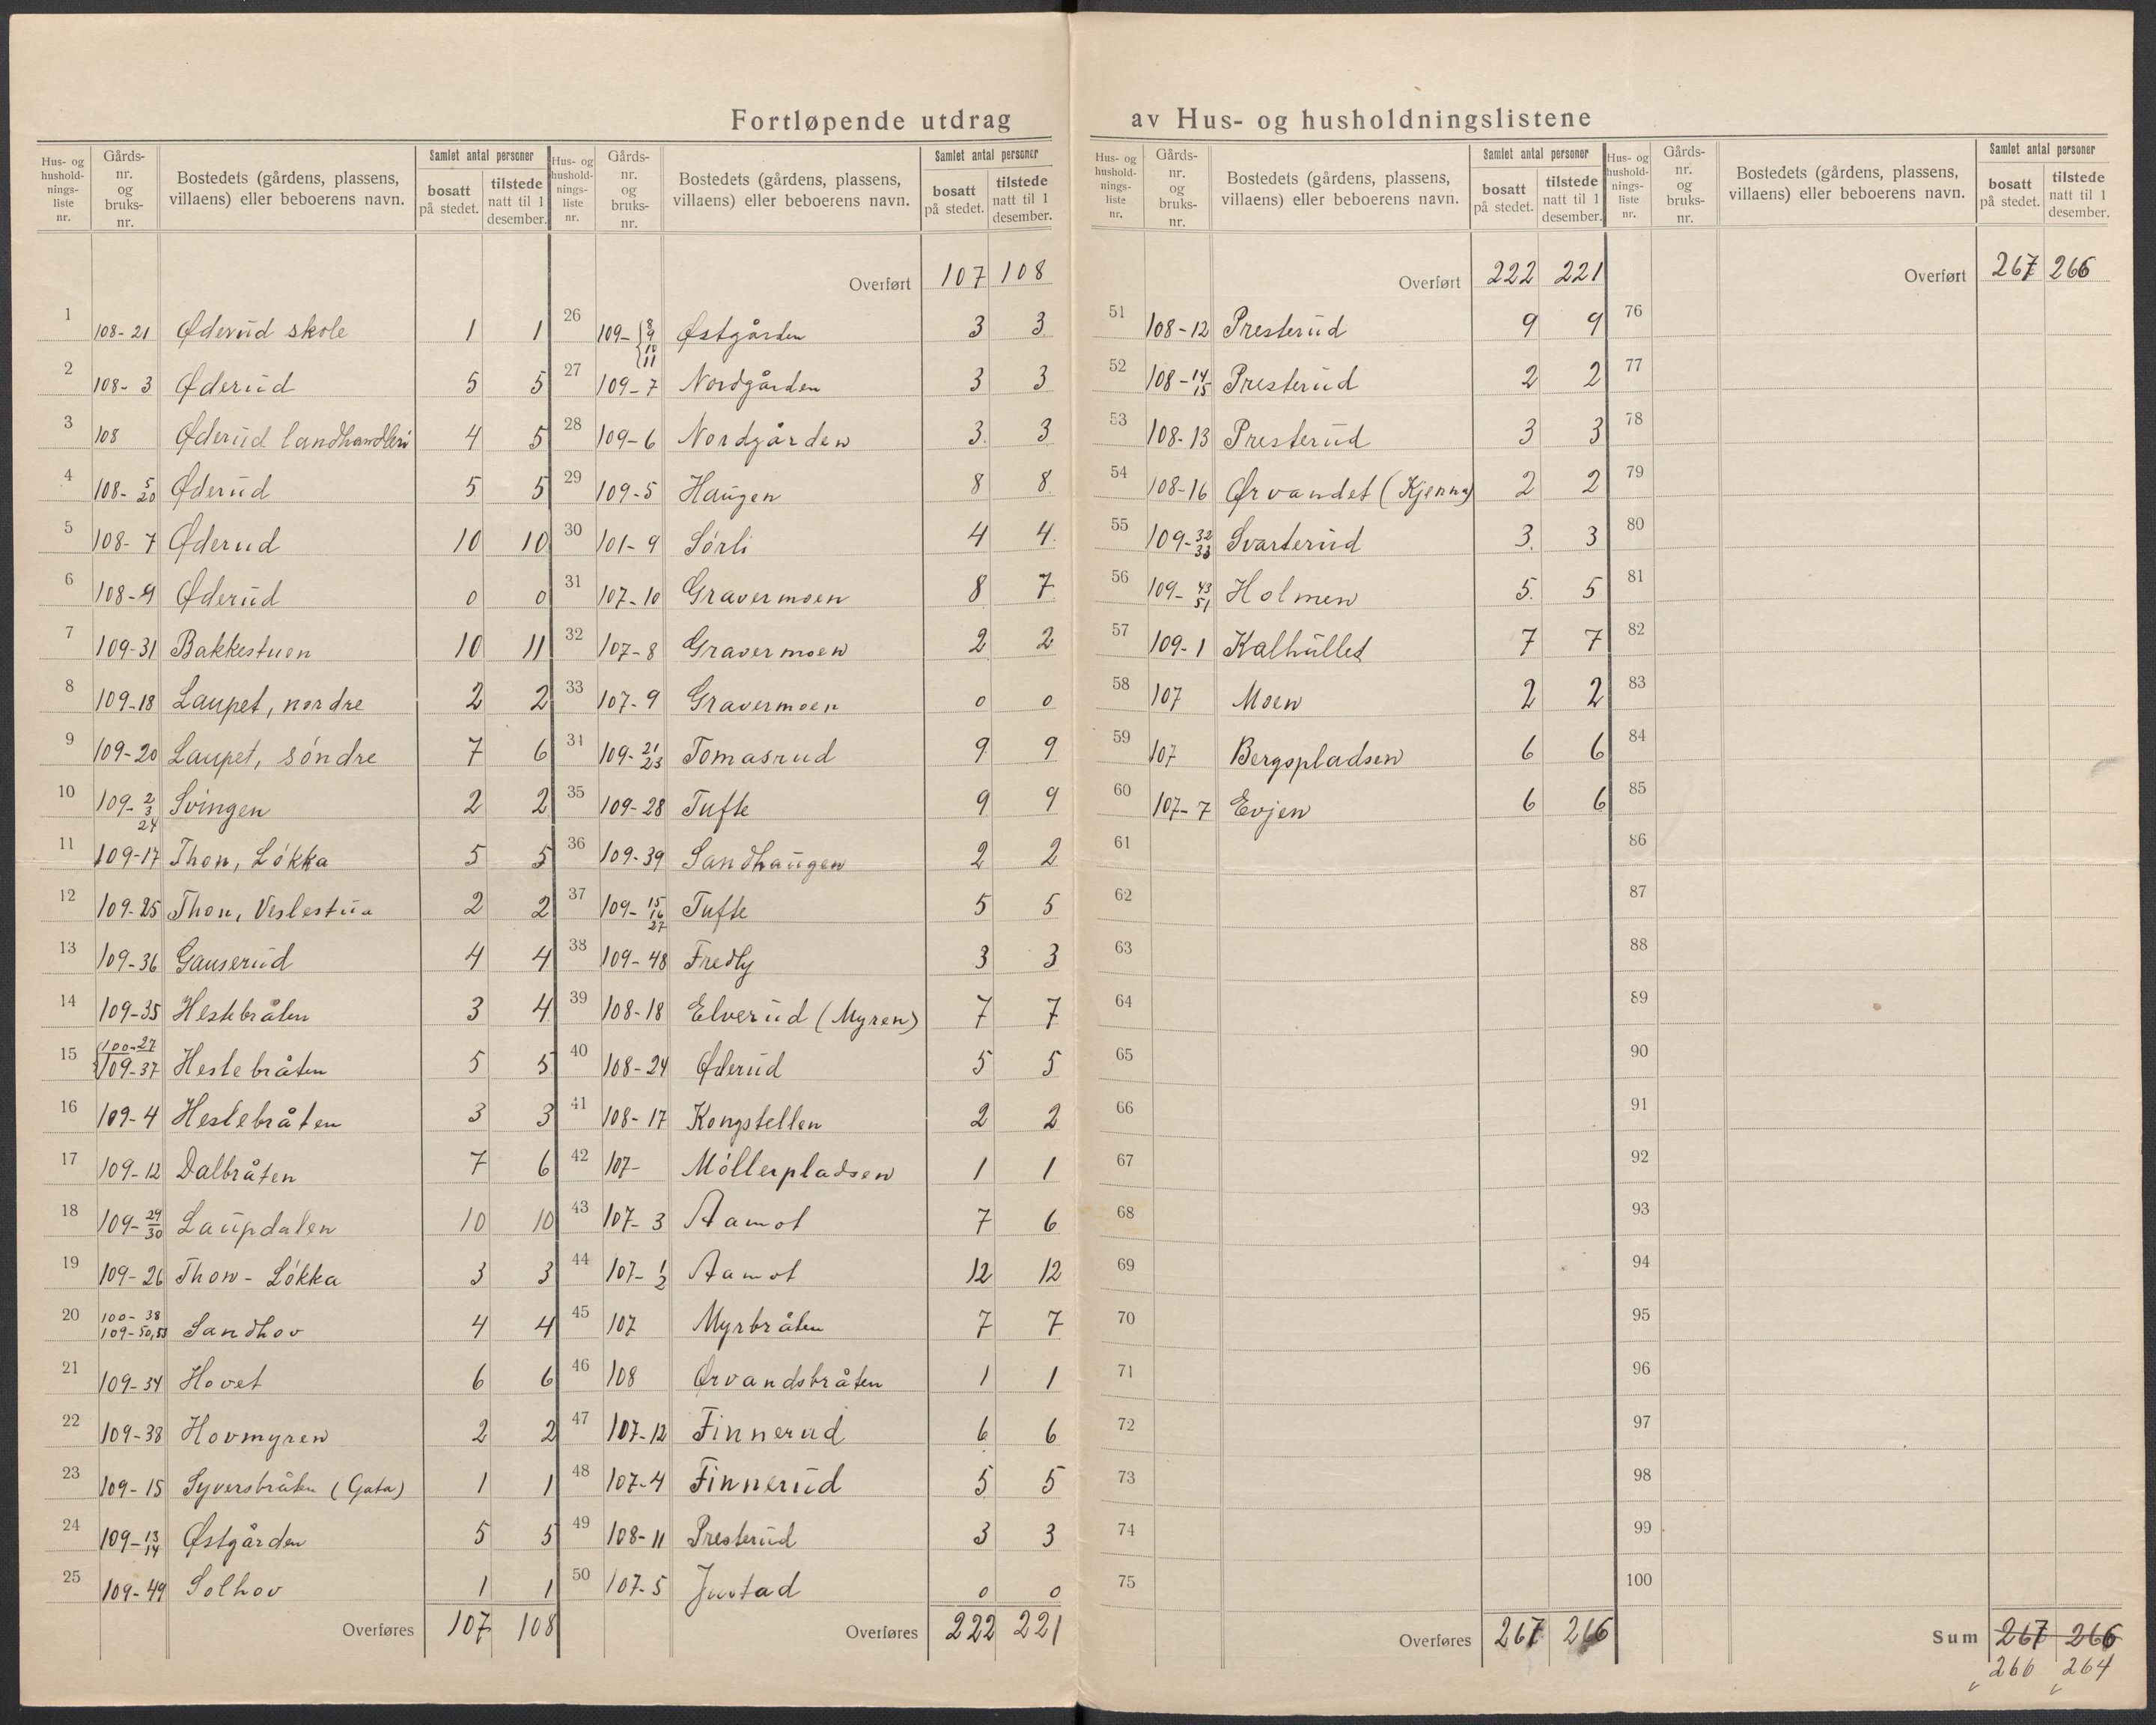 Fortløpende utdrag av Hus- og husholdningslistene
Hus- og hushold-nings-liste nr. Gårds-nr. og bruks-nr. Bostedets (gårdens, plassens, villaens) eller beboerens navn. Samlet antal personer bosatt på stedet. tilstede natt til 1 desember.
1 108-21 Øderud skole 1 1
2 108-3 Øderud 5 5
3 108 Øderud landhandleri 4 5
4 108-5 20 Øderud 5 5
5 108-7 Øderud 10 10
6 108-9 Øderud 0 0
7 109-31 Bakkestuen 10 11
8 109-18 Laupet, nordre 2 2
9 109-20 Laupet, söndre 7 6
10 109-2 3 24 Svingen 2 2
11 109-17 Thon, Lökka 5 5
12 109-25 Thon, Veslestua 2 2
13 109-36 Gauserud 4 4
14 109-35 Hestebråten 3 4
15 100-27 109-37 Hestebråten 5 5
16 109-4 Hestebråten 3 3
17 109-12 Dalbråten 7 6
18 109-29 30 Laupdalen 10 10
19 109-26 Thon-Lökka 3 3
20 100-38 109-50,53 Sandhov 4 4
21 109-34 Hovet 6 6
22 109-38 Hovmyren 2 2
23 109-15 Syversbråten (Gata) 1 1
24 109-13 14 Østgården 5 5
25 109-49 Solhov 1 1
Overføres 107 108
Hus- og hushold-nings-liste nr. Gårds-nr. og bruks-nr. Bostedets (gårdens, plassens, villaens) eller beboerens navn. Samlet antal personer bosatt på stedet. tilstede natt til 1 desember.
Overført 107 108
26 109-8 9 10 11 Østgården 3 3
27 109-7 Nordgården 3 3
28 109-6 Nordgården 3 3
29 109-5 Haugen 8 8
30 101-9 Sörli 4 4
31 107-10 Gravermoen 8 7
32 107-8 Gravermoen 2 2
33 107-9 Gravermoen 0 0
31 109-21 23 Tomasrud 9 9
35 109-28 Tufte 9 9
36 109-39 Sandhaugen 2 2
37 109-15 16 27 Tufte 5 5
38 109-48 Fredly 3 3
39 108-18 Elverud (Myren) 7 7
40 108-24 Øderud 5 5
41 108-17 Kongstellen 2 2
42 107- Möllerpladsen 1 1
43 107-3 Aamot 7 6
44 107-1 2 Aamot 12 12
45 107 Myrbråten 7 7
46 108 Ørvandsbråten 1 1
47 107-12 Finnerud 6 6
48 107-4 Finnerud 5 5
49 108-11 Presterud 3 3
50 107-5 Justad 0 0
Overføres 222 221
Hus- og hushold-nings-liste nr. Gårds-nr. og bruks-nr. Bostedets (gårdens, plassens, villaens) eller beboerens navn. Samlet antal personer bosatt på stedet. tilstede natt til 1 desember.
Overført 222 221
51 108-12 Presterud 9 9
52 108-14 15 Presterud 2 2
53 108-13 Presterud 3 3
54 108-16 Ørvandet (Kjenna) 2 2
55 109-32 33 Svarterud 3 3
56 109-43 51 Holmen 5 5
57 109-1 Kalhullet 7 7
58 107 Moen 2 2
59 107 Bergspladsen 6 6
60 107-7 Evjen 6 6
61
62
63
64
65
66
67
68
69
70
71
72
73
74
75
Overføres 267 266
Hus- og hushold-nings-liste nr. Gårds-nr. og bruks-nr. Bostedets (gårdens, plassens, villaens) eller beboerens navn. Samlet antal personer bosatt på stedet. tilstede natt til 1 desember.
Overført 267 266
76
77
78
79
80
81
82
83
84
85
86
87
88
89
90
91
92
93
94
95
96
97
98
99
100
Sum 267 266
266 264